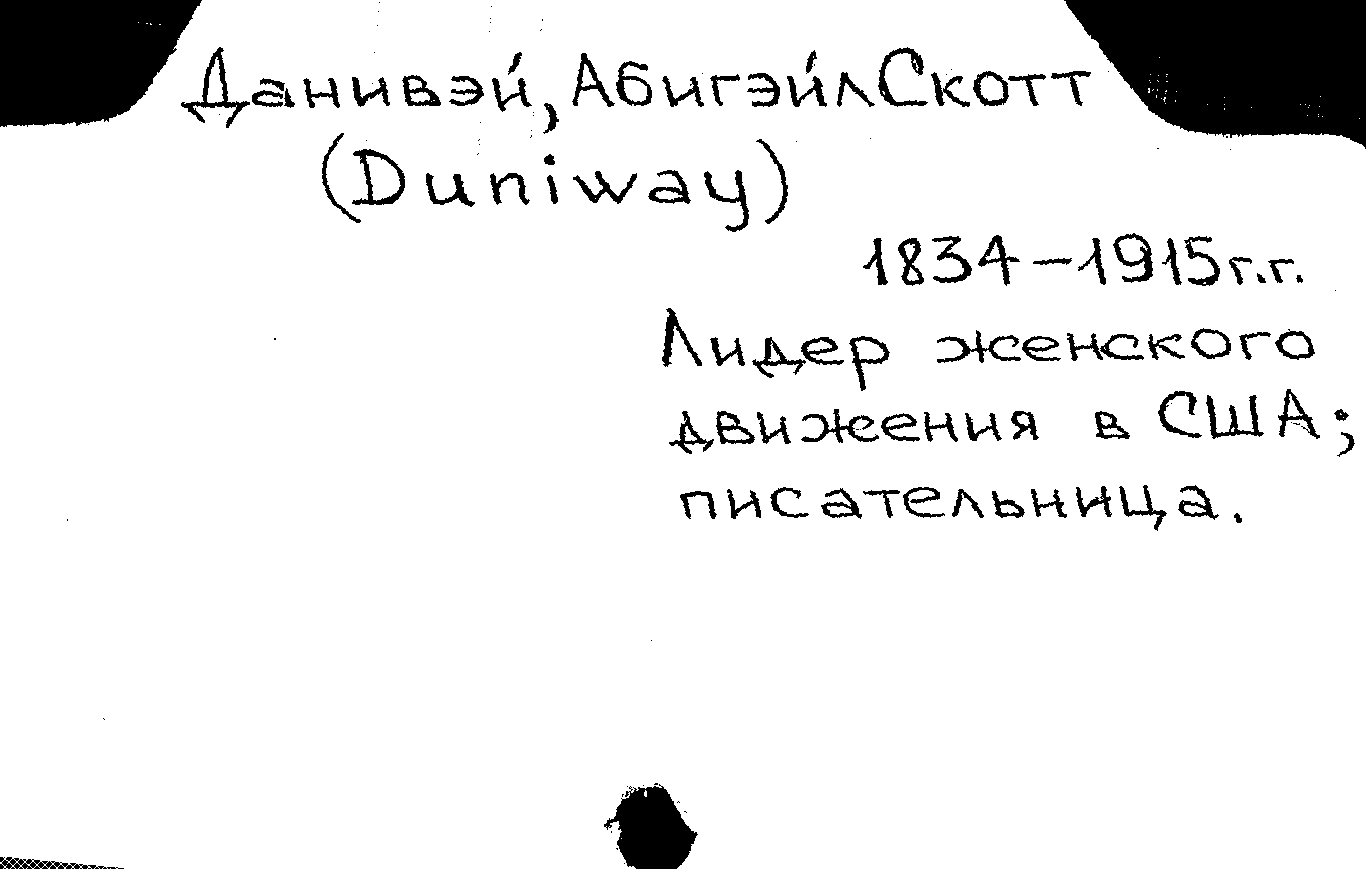 Данивэй, Абигэйл Скотт
(Duniway)
1834–1915 г.г.
Лидер женского
движения в США;
писательница.